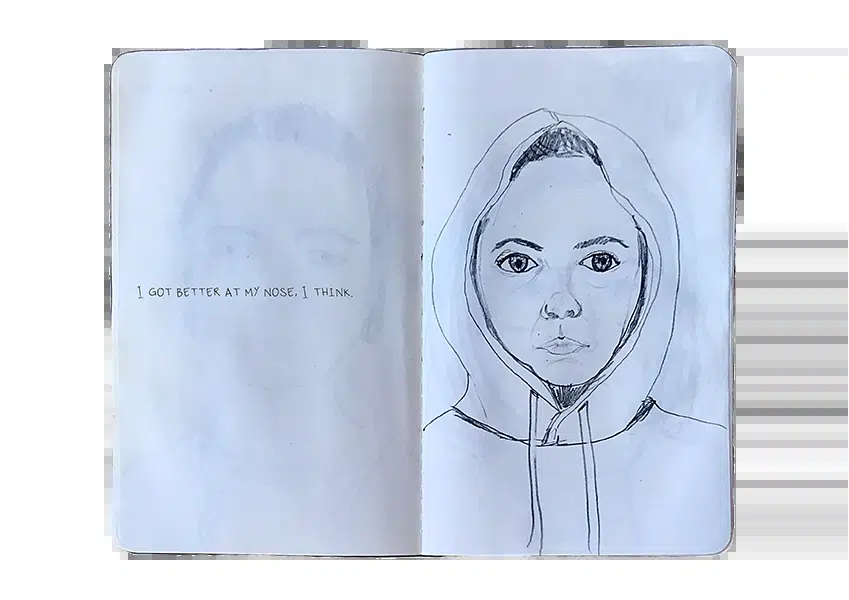 I GOT BETTER AT MY NOSE, I THINK.